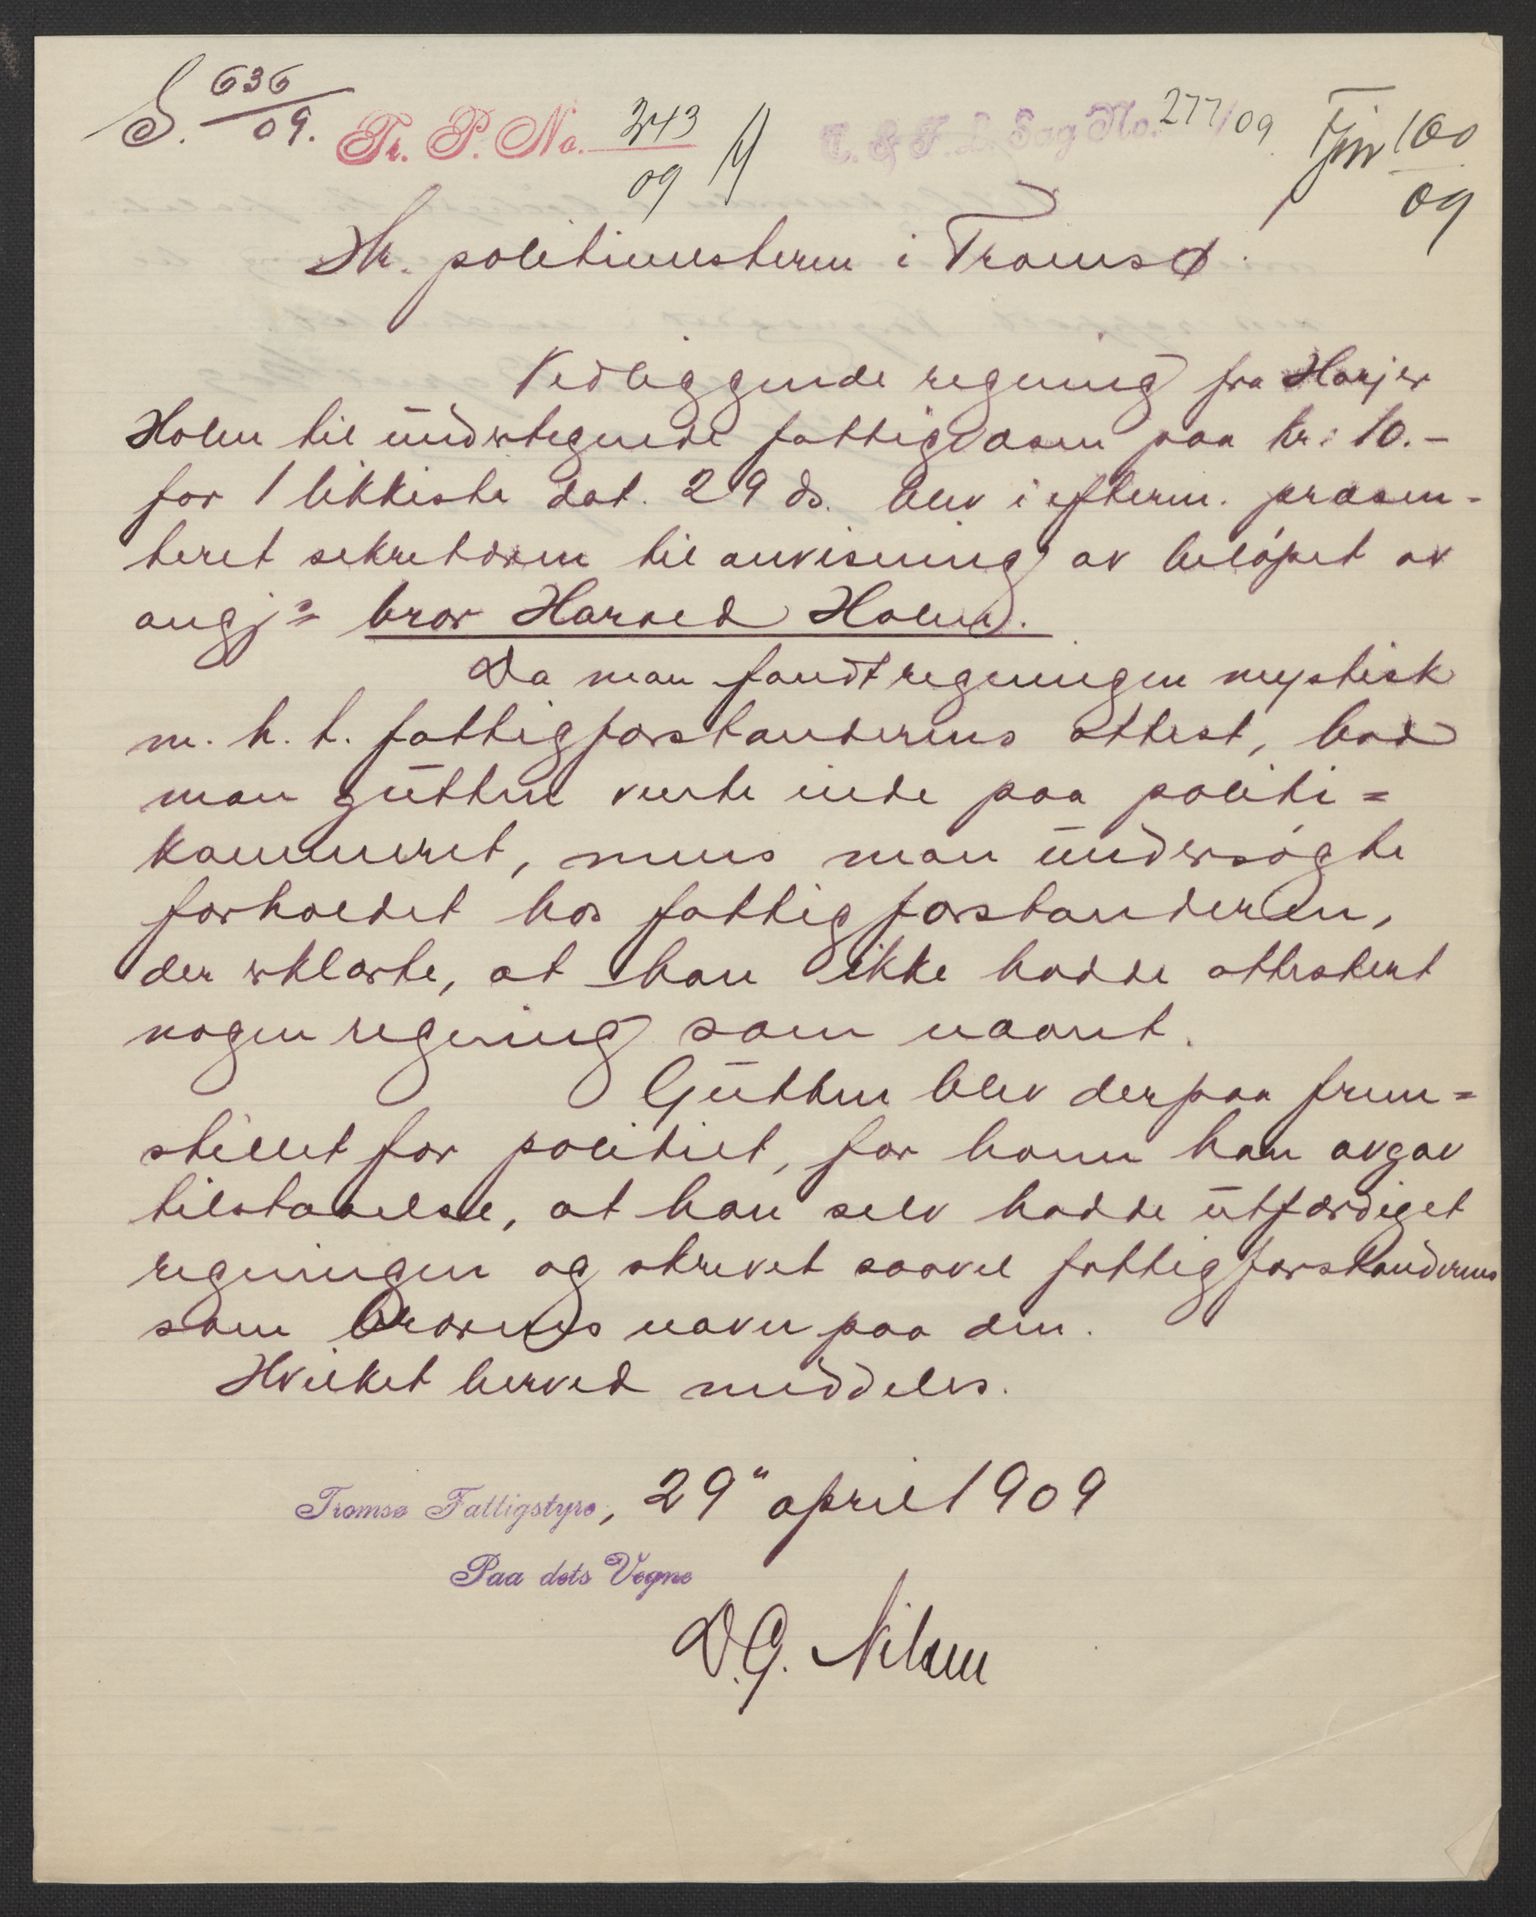 S. 636/09. Tr. P. No. 343/09 T. & F. L. Sag No. 277/09 100/09
Hr. politimesteren i Tromsø.
Vedliggende regning fra Harjer
Holm til undertegnede fattigvæsen paa kr. 10.-
for 1 likkiste dat. 29 ds. blev i efterm. præsen-
teret sekretæren til anvisning av beløpet av
angj= bror Harald Holm.
Da man fandt regningen mystisk
m. h. t. fattigforstanderens attest, bad
man gutten vente inde paa politi=
kammeret, mens man undersøgte
forholdet hos fattigforstanderen,
der erklærte, at han ikke hadde attestert
nogen regning som nævnt.
Gutten blev derpaa frem=
stillet for politiet, for hvem han avgav
tilstaaelse, at han selv hadde utfærdiget
regningen og skrevet saavel fattigforstanderens
som brorens navn paa den.
Hvilket herved meddeles.
Tromsø Fattigstyre, 29" april 1909
Paa dets Vegne
D. G. Nilsen